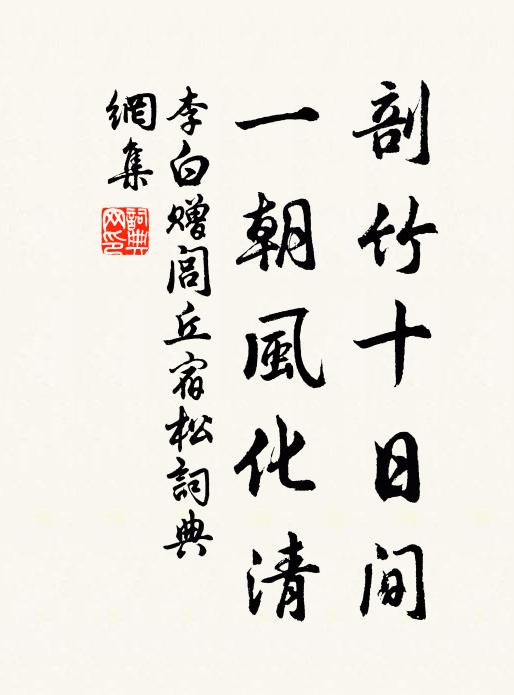 剖竹十日间
一朝風化清
李白赠闾丘宿松詞典
網集
詞典網印